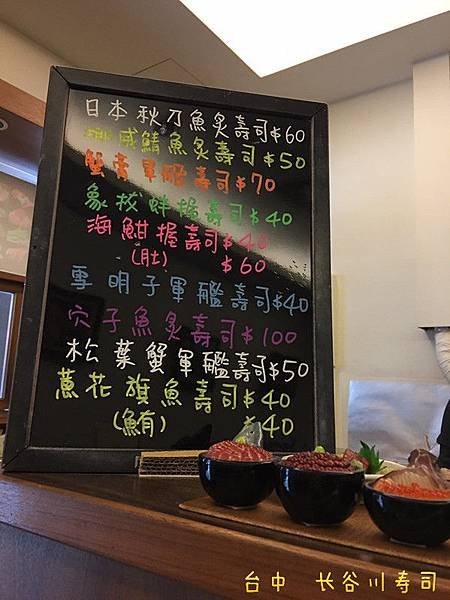 日本秋刀魚炙壽司$60
挪威鯖魚炙壽司$50
蟹膏軍艦壽司$70
象拔蚌握壽司$40
海魽握壽司$40
(肚) $60
雪明子軍艦壽司$40
穴子魚炙壽司$100
松葉蟹軍艦壽司$50
蔥花旗魚壽司$40
(鮪) $40
台中 长谷川寿司